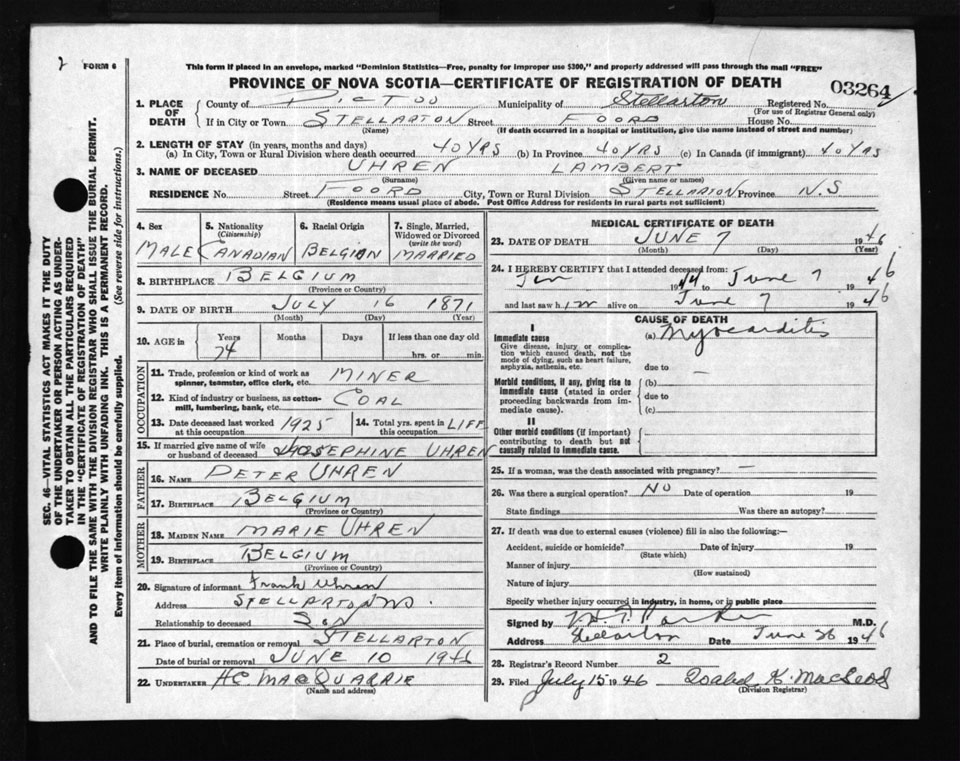 2 FORM 6
This form if placed in an envelope, marked "Dominion Statistics—Free, penalty for improper use $300," and properly addressed will pass through the mail "FREE"
PROVINCE OF NOVA SCOTIA—CERTIFICATE OF REGISTRATION OF DEATH
03264
SEC. 46—VITAL STATISTICS ACT MAKES IT THE DUTY
OF THE UNDERTAKER OR PERSON ACTING AS UNDER-
TAKER TO OBTAIN ALL THE PARTICULARS REQUIRED
IN THE "CERTIFICATE OF REGISTRATION OF DEATH"
AND TO FILE THE SAME WITH THE DIVISION REGISTRAR WHO SHALL ISSUE THE BURIAL PERMIT.
WRITE PLAINLY WITH UNFADING INK. THIS IS A PERMANENT RECORD.
Every item of information should be carefully supplied. (See reverse side for instructions.)
1. PLACE OF DEATH County of PICTOU Municipality of Stellarton Registered No.
(For use of Registrar General only)
If in City or Town STELLARTON Street FOORD House No.
(Name) (If death occurred in a hospital or institution, give the name instead of street and number)
2. LENGTH OF STAY (in years, months and days)
(a) In City, Town or Rural Division where death occurred 40 YRS (b) In Province 40 YRS (c) In Canada (if immigrant) 40 YRS
3. NAME OF DECEASED UHREN LAMBERT
(Surname) (Given name or names)
RESIDENCE No. Street FOORD City, Town or Rural Division STELLARTON Province N.S
(Residence means usual place of abode. Post Office Address for residents in rural parts not sufficient)
4. Sex 5. Nationality (Citizenship) 6. Racial Origin 7. Single, Married, Widowed or Divorced (write the word)
MALE CANADIAN BELGIAN MARRIED
8. BIRTHPLACE BELGIUM
(Province or Country)
9. DATE OF BIRTH JULY 16 1871
(Month) (Day) (Year)
10. AGE in Years Months Days If less than one day old
74 hrs. or min.
OCCUPATION
11. Trade, profession or kind of work as spinner, teamster, office clerk, etc. MINER
12. Kind of industry or business, as cotton-mill, lumbering, bank, etc. COAL
13. Date deceased last worked at this occupation 1925 14. Total yrs. spent in this occupation LIFE
15. If married give name of wife or husband of deceased JOSEPHINE UHREN
FATHER
16. NAME PETER UHREN
17. BIRTHPLACE BELGIUM
(Province or Country)
MOTHER
18. MAIDEN NAME MARIE UHREN
19. BIRTHPLACE BELGIUM
(Province or Country)
20. Signature of informant Frank Uhren
Address STELLARTON NS.
Relationship to deceased SON
21. Place of burial, cremation or removal STELLARTON
Date of burial or removal JUNE 10 1946
22. UNDERTAKER H.C. MACQUARRIE
(Name and address)
MEDICAL CERTIFICATE OF DEATH
23. DATE OF DEATH JUNE 7 1946
(Month) (Day) (Year)
24. I HEREBY CERTIFY that I attended deceased from:
Jan 1944 to June 7 1946
and last saw him alive on June 7 1946
CAUSE OF DEATH
I
Immediate cause (a) Myocarditis
Give disease, injury or complica-
tion which caused death, not the
mode of dying, such as heart failure,
asphyxia, asthenia, etc. due to —
Morbid conditions, if any, giving rise to (b)
immediate cause (stated in order due to
proceeding backwards from im-
mediate cause). (c)
II
Other morbid conditions (if important)
contributing to death but not
causally related to immediate cause.
25. If a woman, was the death associated with pregnancy? —
26. Was there a surgical operation? NO Date of operation 19
State findings Was there an autopsy?
27. If death was due to external causes (violence) fill in also the following:—
Accident, suicide or homicide? Date of injury 19
(State which)
Manner of injury
(How sustained)
Nature of injury
Specify whether injury occurred in industry, in home, or in public place
Signed by Parker M.D.
Address Stellarton Date June 26 1946
28. Registrar's Record Number 2
29. Filed July 15 1946 Isabel K. MacLeod
(Division Registrar)